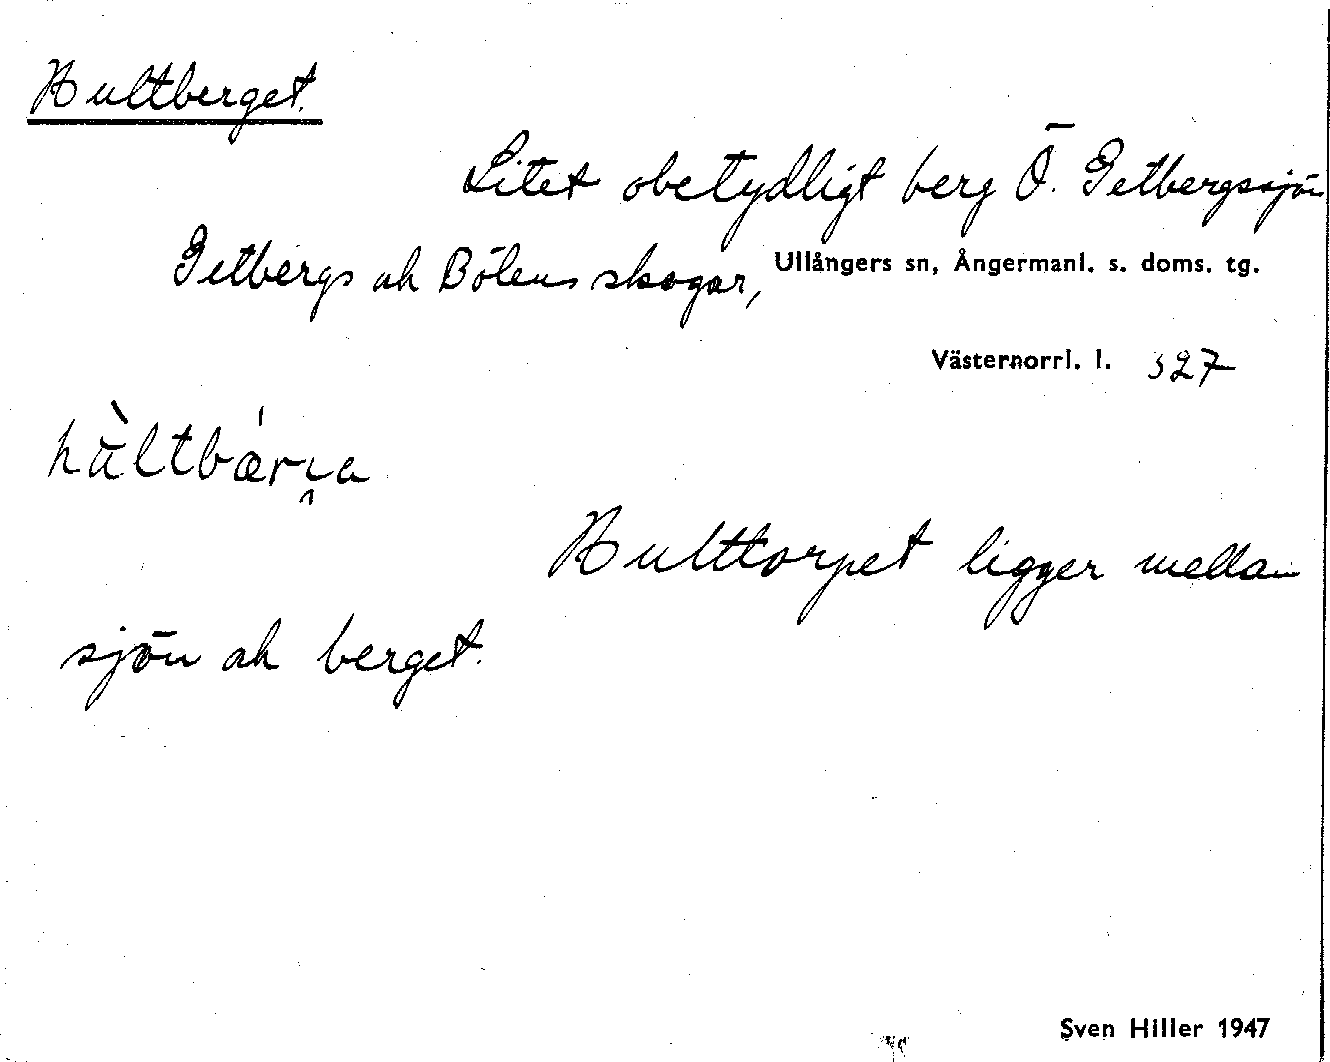 Hultberget.
Litet obetydligt berg Ö. Getbergssjön
Getbergs och Bölens skogar, Ullångers sn, Ångermanl. s. doms. tg.
Västernorrl. l. 327
Hulttorpet ligger mellan
sjön och berget.
Sven Hiller 1947